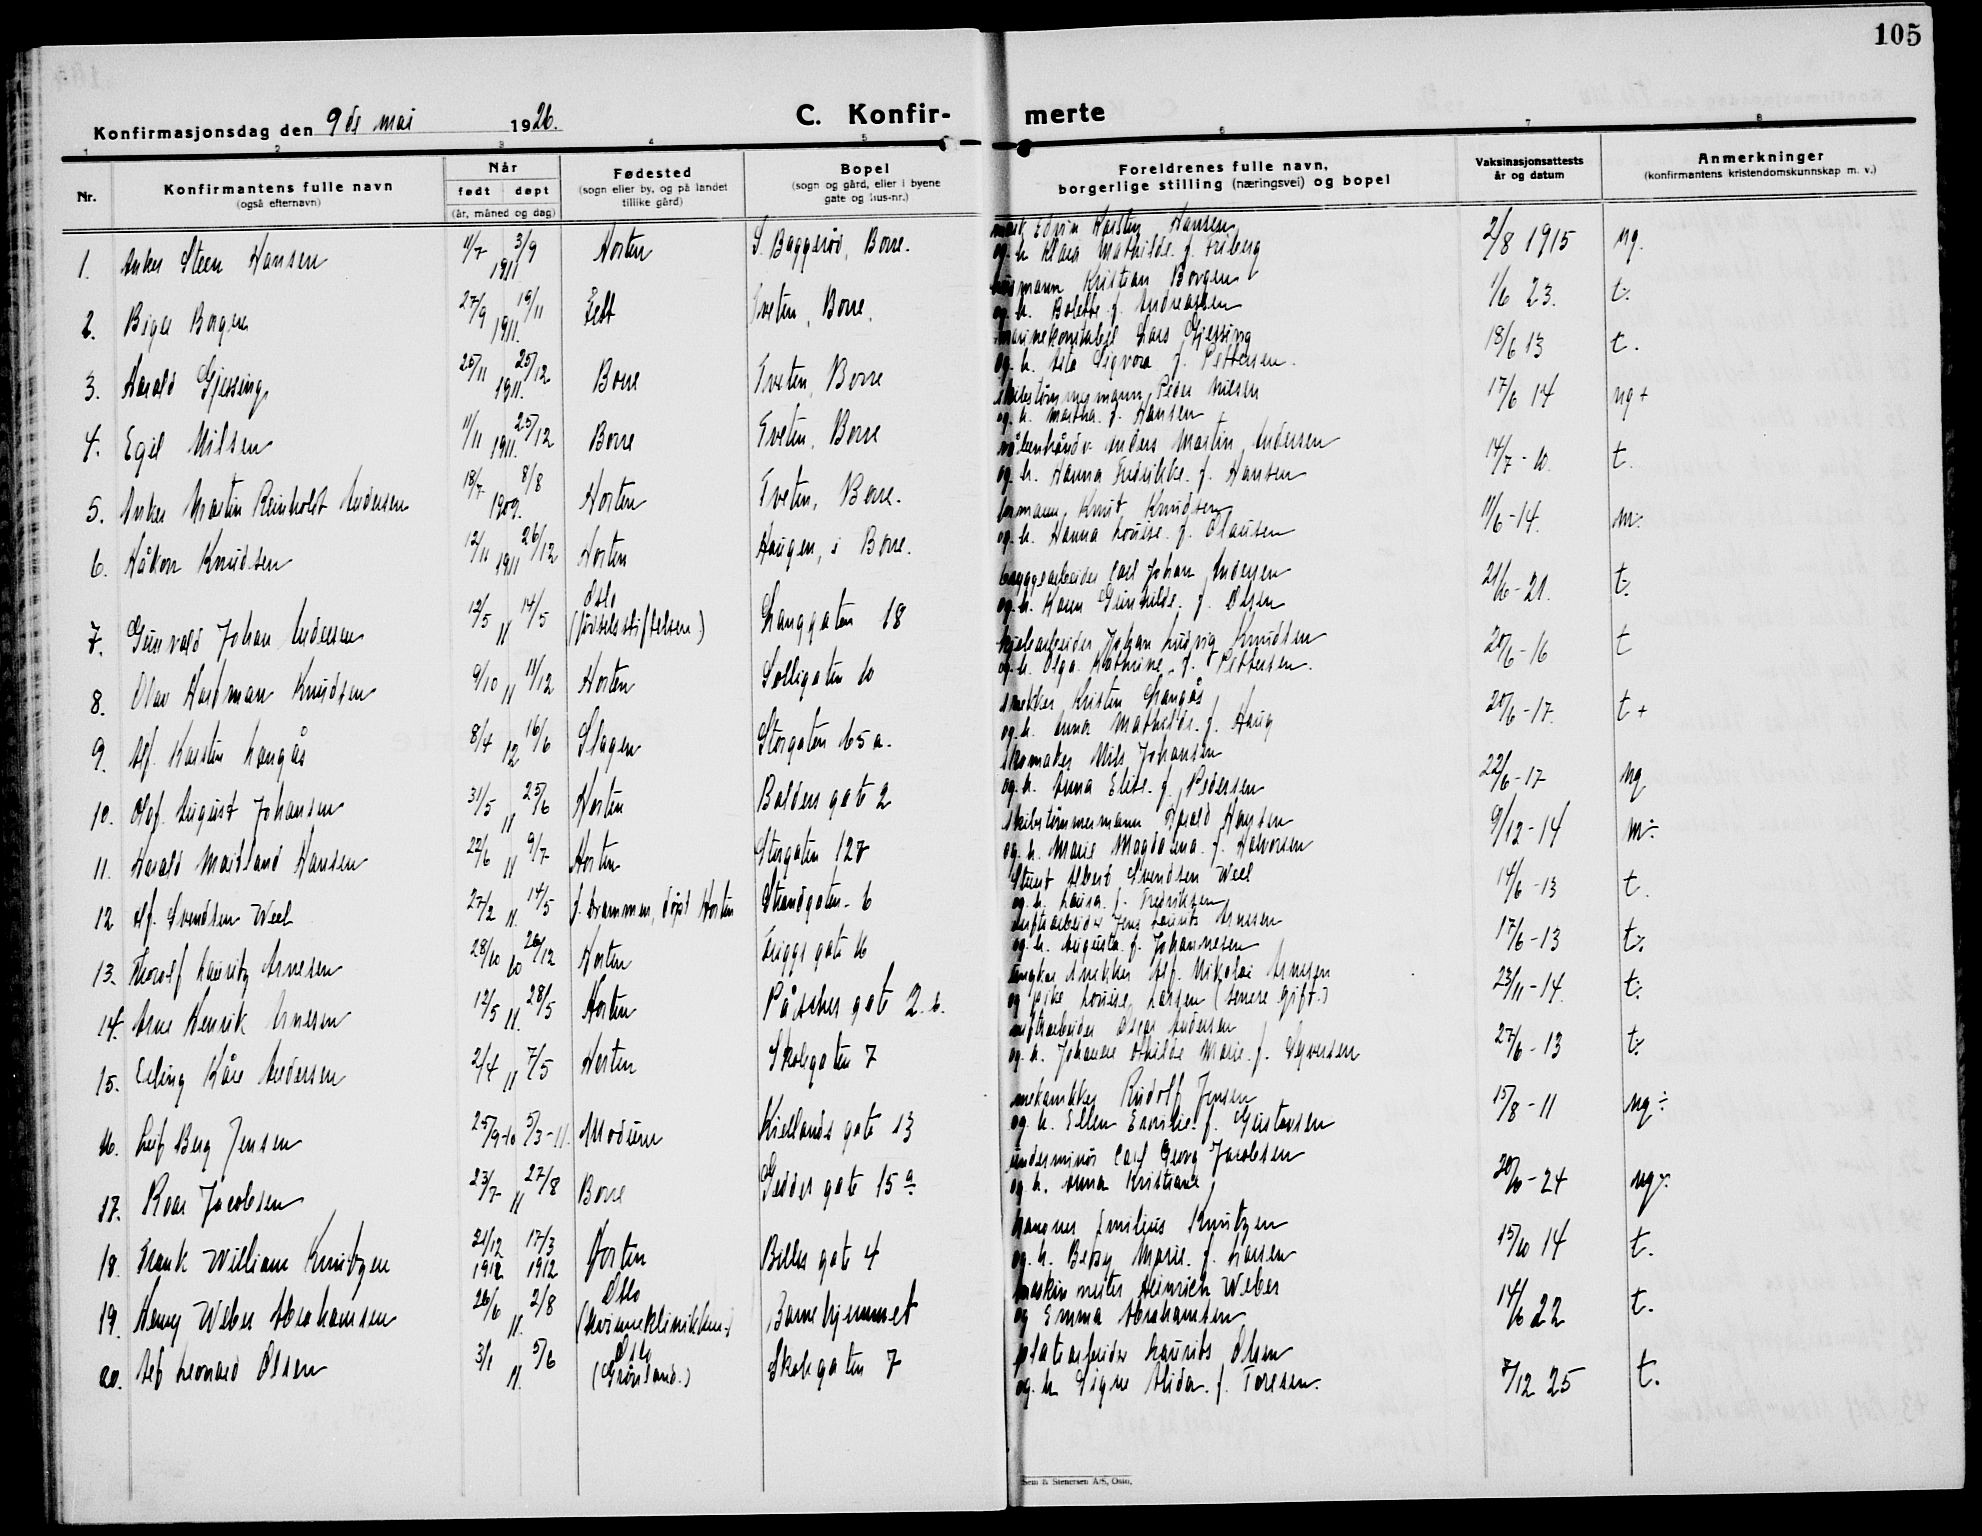 105
Konfirmasjonsdag den 9de mai 1926.
C. Konfir-
merte
1 2 3 4 5 6 7 8
Nr.
Konfirmantens fulle navn
(også efternavn)
Når
født døpt
(år, måned og dag)
Fødested
(sogn eller by, og på landet
tillike gård)
Bopel
(sogn og gård, eller i byene
gate og hus-nr.)
Foreldrenes fulle navn,
borgerlige stilling (næringsvei) og bopel
Vaksinasjonsattests
år og datum
Anmerkninger
(konfirmantens kristendomskunnskap m. v.)
1. Anker Steen Hansen 11/7 3/9 1911 Horten S. Baggerød, Borre. Edvin Karsten Hansen
og h. Klara Mathilde f. Friberg 2/8 1915 ng.
2. Borgen 27/9 19/11 1911. Tveten, Borre. Kristian Borgen
og h. Bolette f. Andreassen 1/6 23. t.
3. Harald Gjessing 25/11 25/12 1911. Borre Tveten, Borre marinekonstabel Lars Gjessing
og h. Asta Sigvora f. Pettersen. 18/6 13 t.
4. Egil Nilsen 11/11 25/12 1911. Borre Tveten, Borre skibstømmermann Peder Nilsen
og h. Martha f. Hansen 17/6 14 ng+
5. Anker Martin Reinholdt Andersen 18/7 8/8 1909. Horten Tveten, Borre. Anders Martin Andersen
og h. Hanna Fredrikke f. Hansen 14/7 - 10. t.
6. Håkon Knudsen 12/11 26/12 1911 Horten Haugen, i Borre. formann Knut Knudsen
og h. Hanna Louise f. Clausen 11/6 - 14. m.
7. Gunvald Johan Andersen 12/5 14/5 11 Oslo
(fødselsstiftelsen) Langgaten 18 bryggearbeider Carl Johan Andersen
og h. Karen Gunhilde f. Olsen 21/6 - 21. t.
8. Olav Hartman Knudsen 9/10 11/12 11 Horten Solligaten 10 Johan Ludvig Knudsen
og h. Olga Kathrine f. Pettersen. 20/6 - 16 t
9. Alf Karsten Langås 8/4 16/6 12 Slagen Storgaten 65 a. snekker Kristen Langås
og h. Anna Mathilde f. Haug 20/6 - 17. t+
10. Olof August Johansen 31/5 25/6 11 Horten Balders gate 2 Skomaker Nils Johansen
og h. Anna Elise f. Pedersen 22/6 - 17 ng
11. Harald Maitland Hansen 22/6 9/7 11 Horten Storgaten 127 skibstømmermann Harald Hansen
og h. Marie Magdalena f. Halvorsen 9/12 - 14 m÷
12 Alf Svendsen Weel 27/2 14/5 11. f. Drammen, døpt Horten Strandgaten 6 Stuert Albert Svendsen Weel
og h. Laura f. Fredriksen 14/6 - 13 t.
13. Thorolf Lauritz Arnesen 28/10 26/12 10 Horten Friggs gate 16 Jens Laurits Arnesen
og h. Augusta f. Johannesen 17/6 - 13 t÷
14. Arne Henrik Arnesen 12/5 28/5 11. Horten Påskes gate 2 b. ungkar snekker Alf Nikolai Arnesen
og pike Louise Larsen (senere gift.) 23/11 - 14. t÷
15. Erling Kåre Andersen 2/4 7/5 11 Horten Skolegaten 7 Oscar Andersen
og h. Johanne Mathilde Marie f. Syversen 27/6 - 13 t÷
16. Leif Berg Jensen 25/9-10 5/3-11. Modum Kiellands gate 13 mekanikker Rudolf Jensen
og h. Ellen Emilie f. Gustavsen 15/8 - 11 ng÷
17. Roar Jacobsen 23/7 27/8 11 Borre Geddes gate 15 a. underminør Carl Georg Jacobsen
og h. Anna Kristiane 20/10 - 24 ng÷
18. Frank William Knutzen 21/12 17/3 1912 1912 Horten Billes gate 4 Emilius Knutzen
og h. Betsy Marie f. Larsen 15/10 14 t.
19. Henry Weber Abrahamsen 26/6 2/8 11. Oslo
(kvinneklinikken) Barnehjemmet maskinmester Heinrich Weber
og Emma Abrahamsen 14/6 22 t.
20. Leif Leonard Olsen 3/1 5/6 11. Oslo
(Grønland.) Skolegaten 7 platearbeider Laurits Olsen
og h. Signe Alida f. Toresen. 7/12 25 t.
Sem & Stenersen A/S, Oslo.